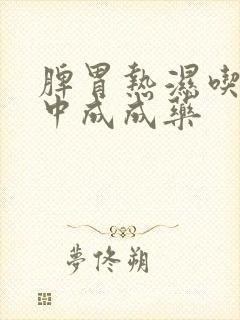 脾胃熱濕喫
中成成藥
夢佟朔